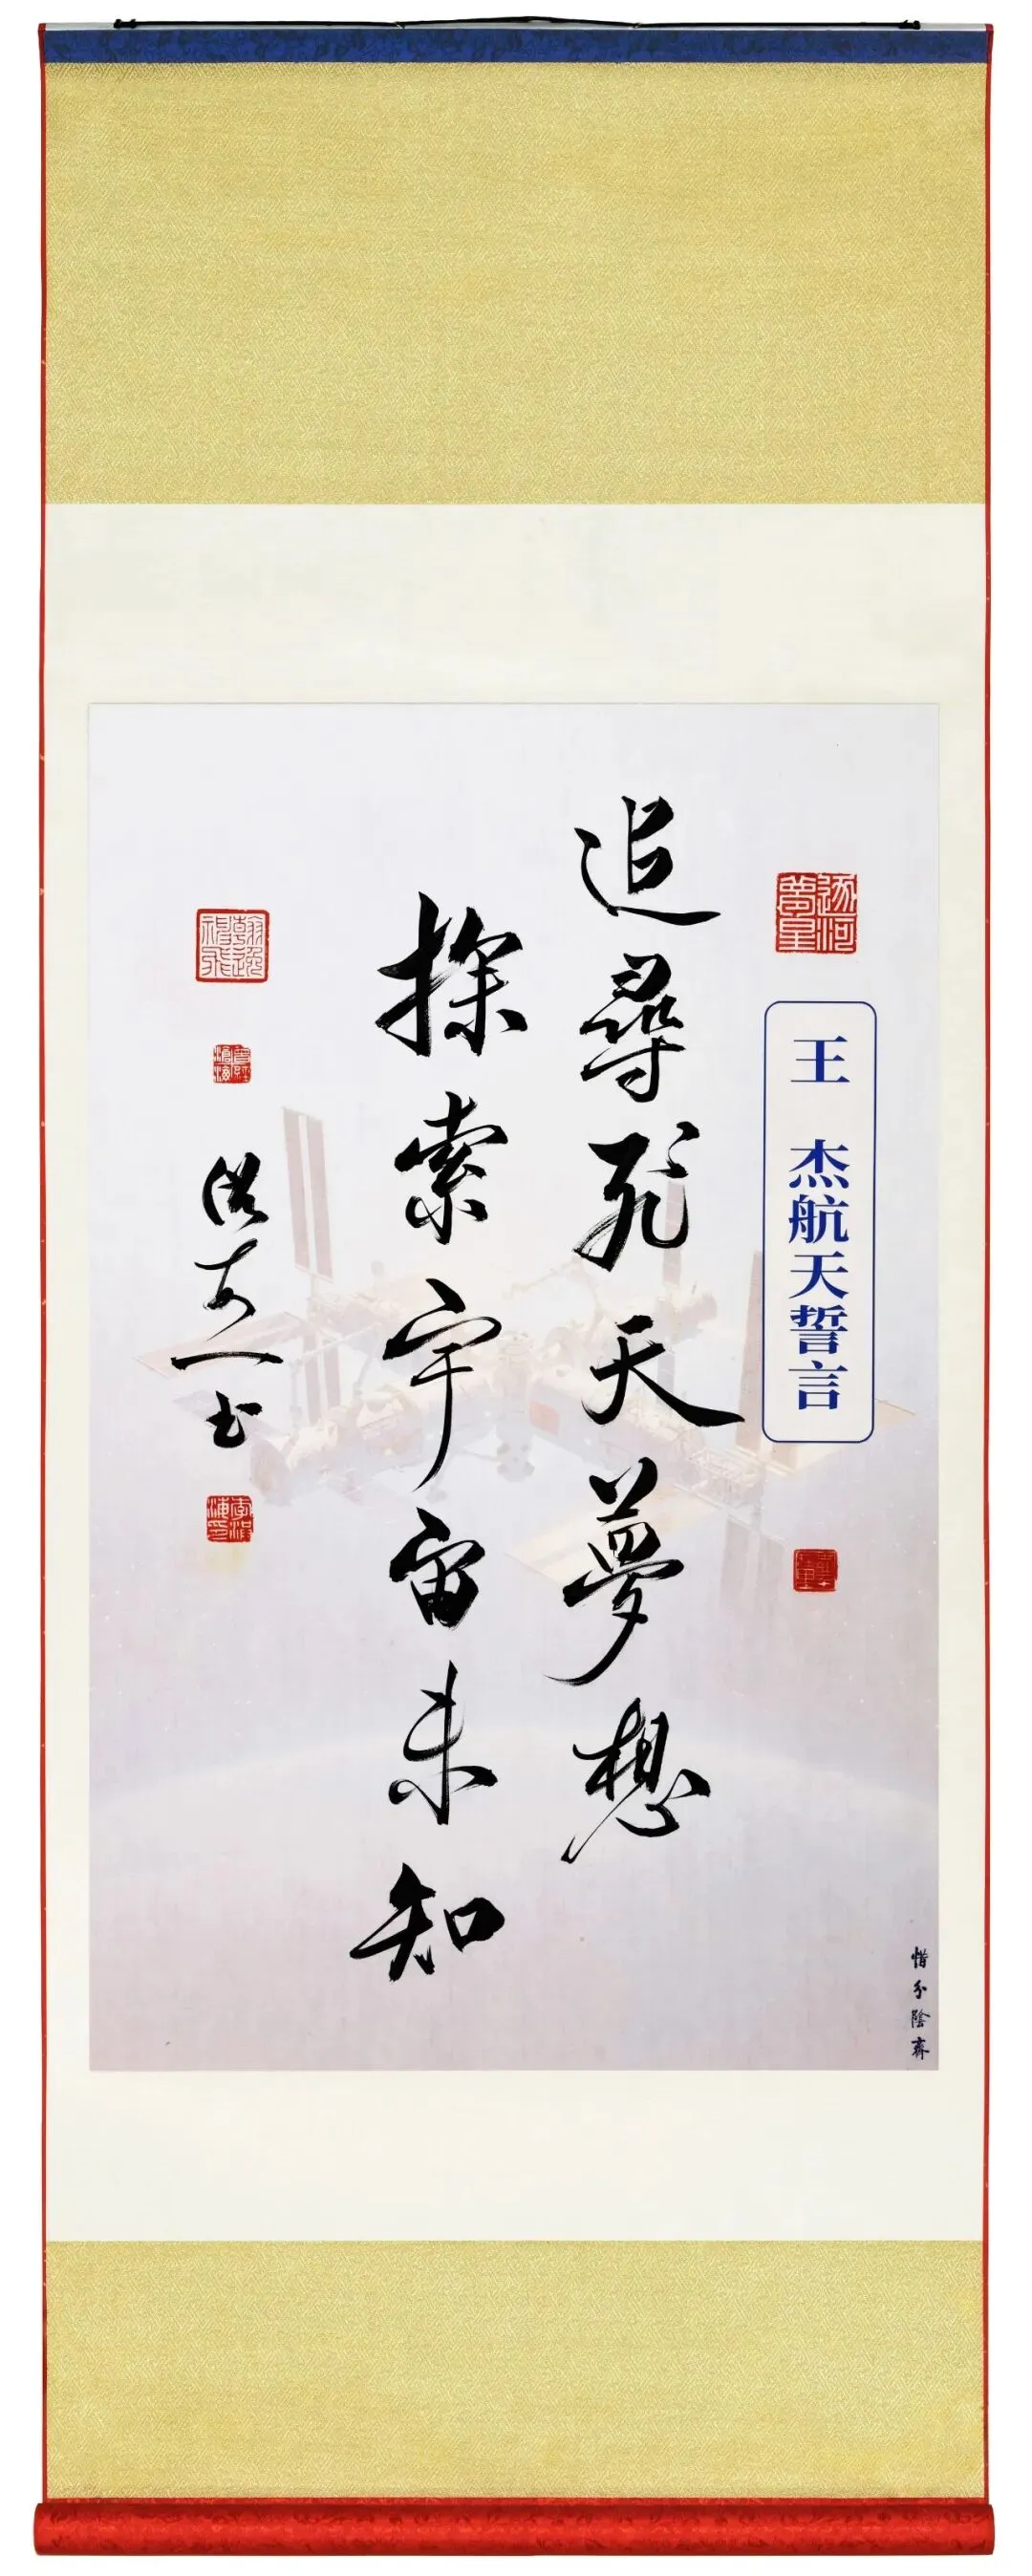 王 杰航天誓言
追尋飛天夢想
探索宇宙未知
惜分陰齋